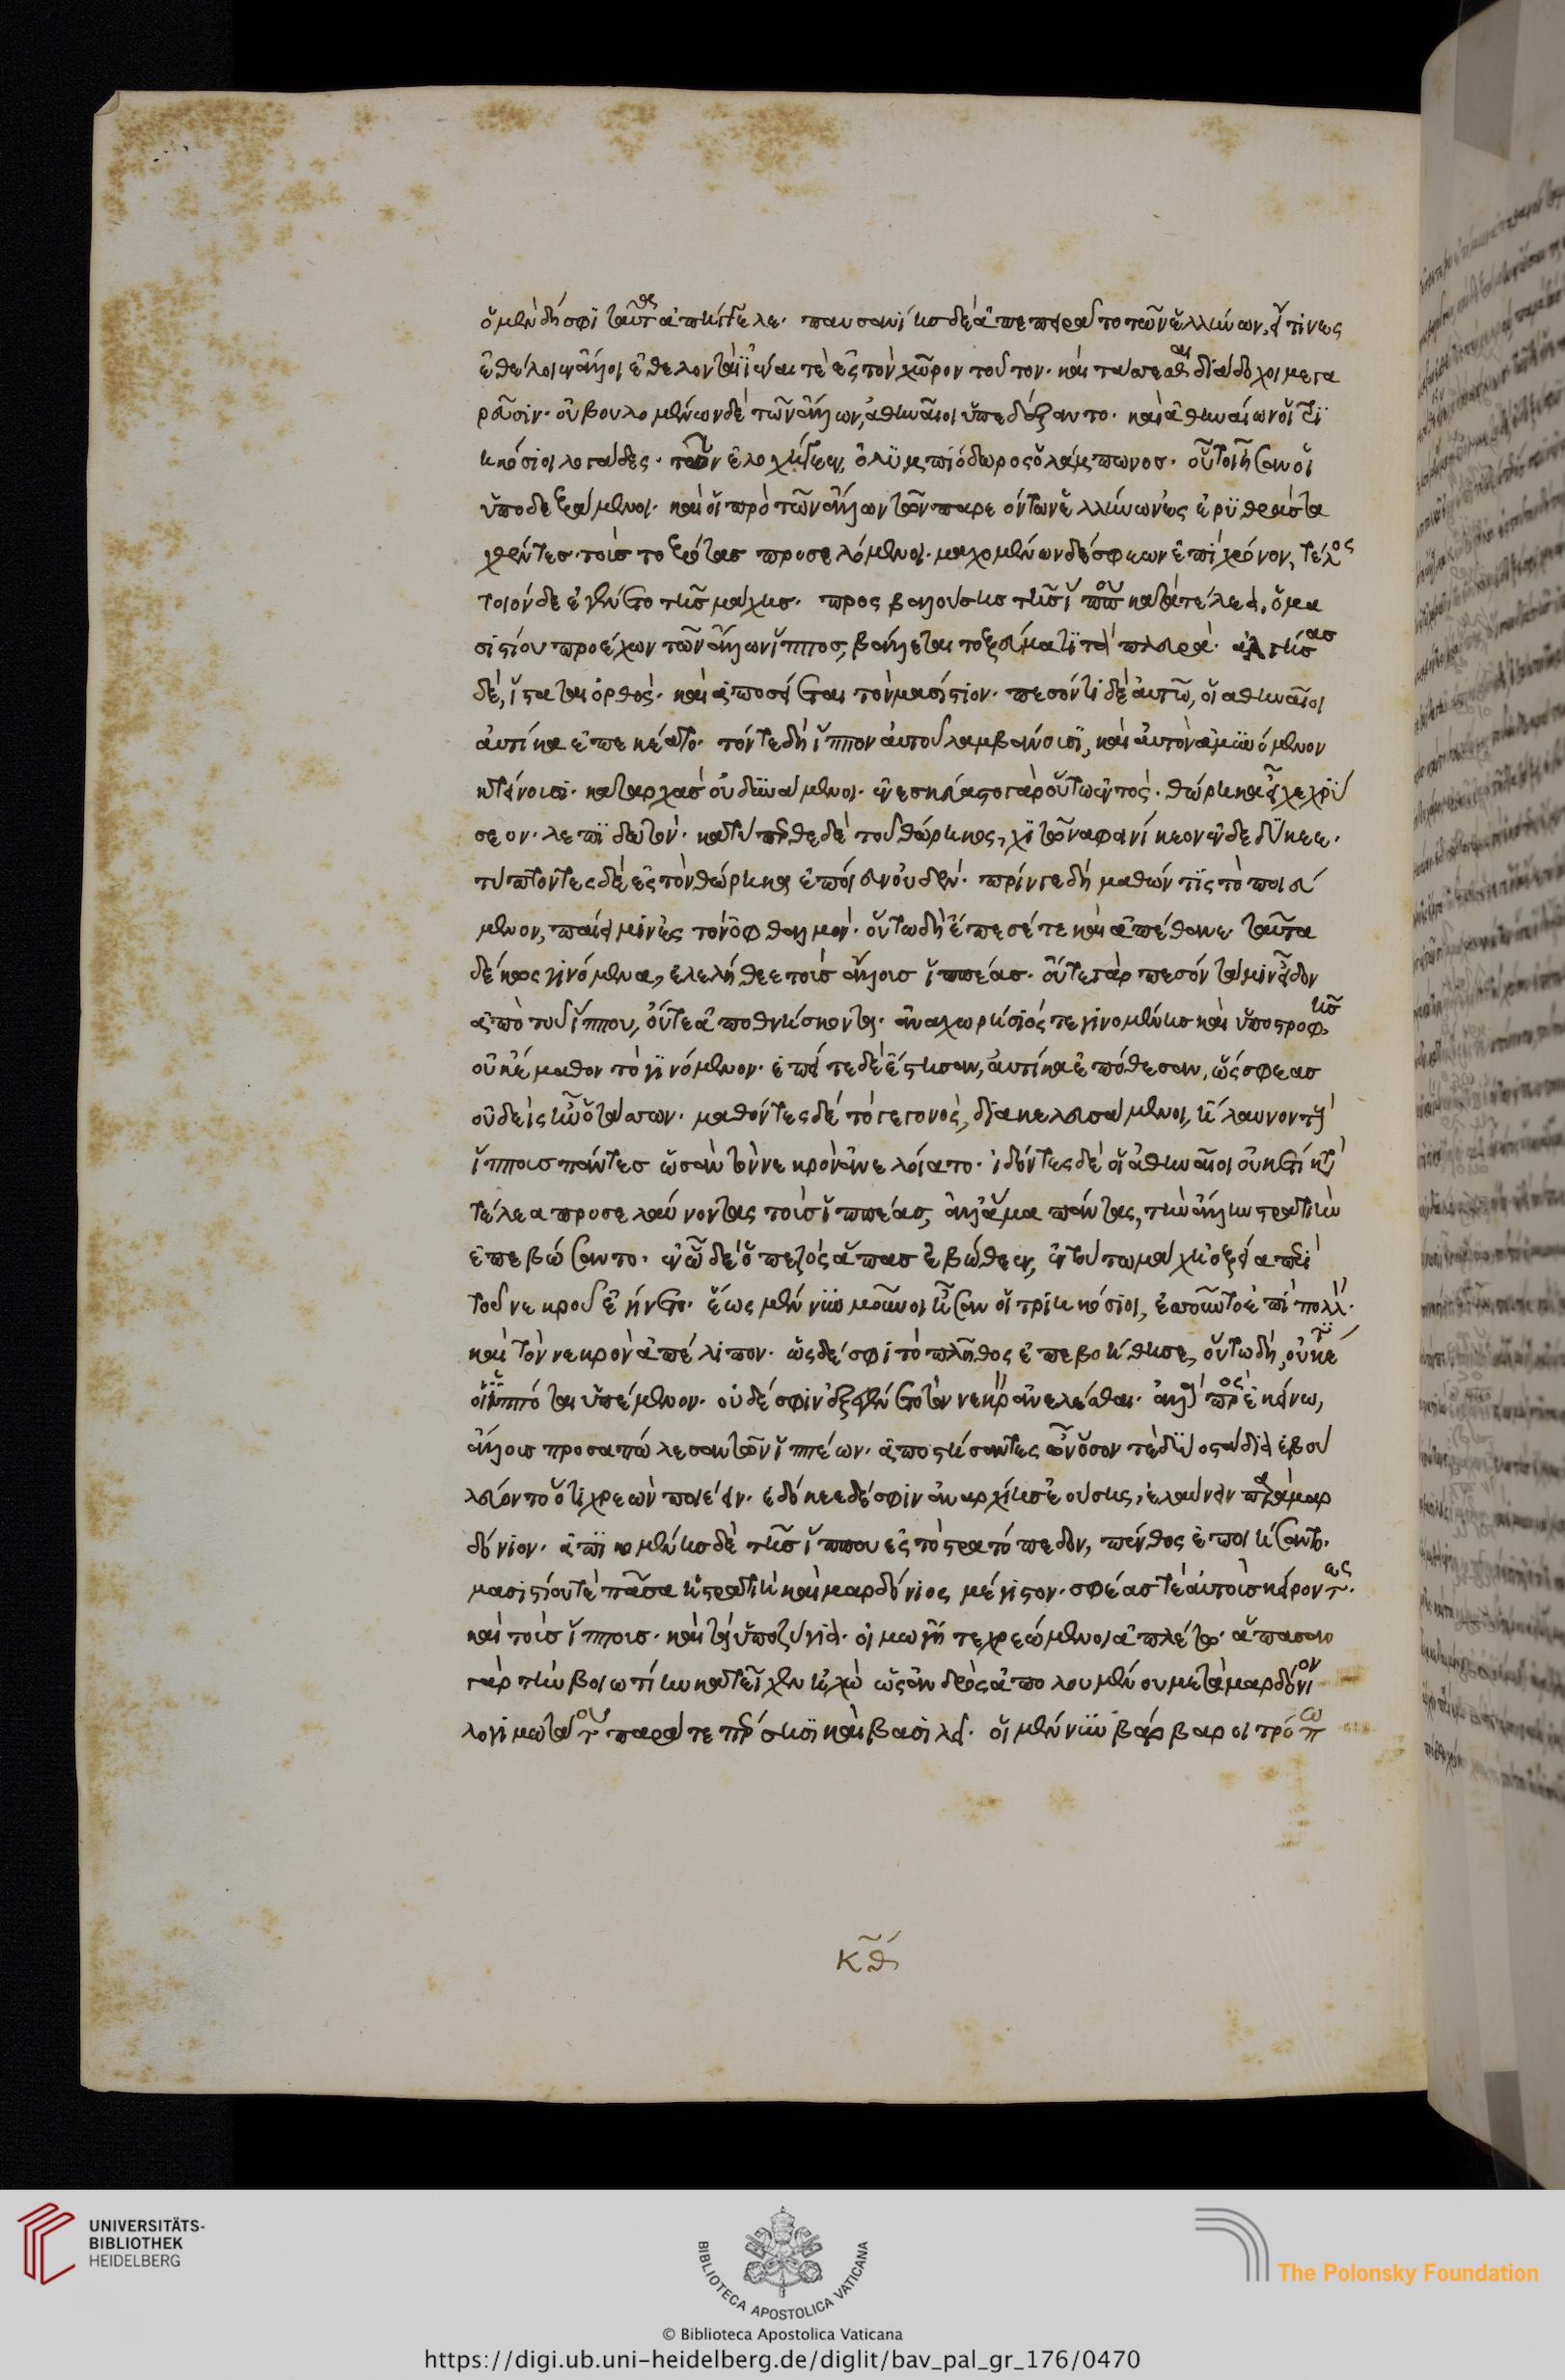 ὁ μὲν δή σφι ταῦτα ἀπήγγελλε. παυσανίης δὲ ἀπεπειρᾶτο τῶν ἑλλήνων, εἴ τινες
ἐθέλοιεν ἄλλοι ἐθελονταὶ ἰέναι τε ἐς τὸν χῶρον τοῦτον. καὶ τάσσεσθαι διάδοχοι μεγα
ρεῦσιν. οὐ βουλομένων δὲ τῶν ἄλλων, ἀθηναῖοι ὑπεδέξαντο. καὶ ἀθηναίων οἱ τρι
ηκόσιοι λογάδες. τῶν ἐλοχήγεεν, ὀλυμπιόδωρος ὁ λάμπωνος. οὗτοι ἦσαν οἱ
ὑποδεξάμενοι. καὶ οἱ πρὸ τῶν ἄλλων τῶν παρεόντων ἑλλήνων ἐς ἐρυθρὰς τα
χθέντες. τοὺς τοξότας προσελόμενοι. μαχομένων δέ σφεων ἐπὶ χρόνον, τέλος
τοιόνδε ἐγένετο τῆς μάχης. προσβαλλούσης τῆς ἵππου κατὰ τέλεα, ὁ μα
σιστίου προέχων τῶν ἄλλων ἵππος, βάλλεται τοξεύματι τὰ πλευρά. ἀλγήσας
δὲ, ἵσταται ὀρθός. καὶ ἀποσείεται τὸν μασίστιον. πεσόντι δὲ αὐτῷ, οἱ ἀθηναῖοι
αὐτίκα ἐπεκέατο. τόν τε δὴ ἵππον αὐτοῦ λαμβάνουσι, καὶ αὐτὸν ἀμυνόμενον
κτείνουσι. καταρχὰς οὐ δυνάμενοι. ἐνεσκεύαστο γὰρ οὕτω ἐντός. θώρηκα εἶχε χρύ
σεον λεπιδωτόν. κατύπερθε δὲ τοῦ θώρηκος, κιθῶνα φοινίκεον ἐνδεδύκεε.
τύπτοντες δὲ ἐς τὸν θώρηκα ἐποίευν οὐδέν. πρίν γε δὴ μαθών τις τὸ ποιεύ
μενον, παίει μιν ἐς τὸν ὀφθαλμόν. οὕτω δὴ ἔπεσέ τε καὶ ἀπέθανε. ταῦτα
δέ κως γινόμενα, ἐλελήθεε τοὺς ἄλλους ἱππέας. οὔτε γὰρ πεσόντα μιν εἶδον
ἀπὸ τοῦ ἵππου, οὔτε ἀποθνήσκοντα. ἀναχωρήσιός τε γινομένης καὶ ὑποστροφῆς
οὐκ ἔμαθον τὸ γινόμενον. ἐπεί τε δὲ ἔστησαν, αὐτίκα ἐπόθεσαν, ὥς σφεας
οὐδεὶς ἦν ὁ τάσσων. μαθόντες δὲ τὸ γεγονὸς, διακελευσάμενοι, ἤλαυνον τοὺς
ἵππους πάντες ὡς ἂν τὸν νεκρὸν ἀνελοίατο. ἰδόντες δὲ οἱ ἀθηναῖοι οὐκέτι κατὰ
τέλεα προσελαύνοντας τοὺς ἱππέας, ἀλλ' ἅμα πάντας, τὴν ἄλλην στρατιὴν
ἐπεβώσαντο. ἐν ᾧ δὲ ὁ πεζὸς ἅπας ἐβώθεεν, ἐν τούτῳ μάχη ὀξεῖα περὶ
τοῦ νεκροῦ ἐγίνετο. ἕως μέν νυν μοῦνοι ἦσαν οἱ τριηκόσιοι, ἑσσοῦντό τε πολλὸν.
καὶ τὸν νεκρὸν ἀπέλιπον. ὡς δέ σφι τὸ πλῆθος ἐπεβοήθησε, οὕτω δὴ, οὐκέτι
οἱ ἱππόται ὑπέμενον. οὐδέ σφιν ἐξεγένετο τὸν νεκρὸν ἀνελέσθαι. ἀλλὰ πρὸς ἐκείνῳ,
ἄλλους προσαπώλεσαν τῶν ἱππέων. ἀποστήσαντες ὦν ὅσον τε δύο στάδια ἐβου
λεύοντο ὅτι χρεὼν ποιέειν. ἐδόκεε δέ σφιν ἀναρχίης ἐούσης, ἐλαύνειν παρὰ μαρ
δόνιον. ἀπικομένης δὲ τῆς ἵππου ἐς τὸ στρατόπεδον, πένθος ἐποιήσαντο.
μασιστίου τε πᾶσα ἡ στρατιὴ καὶ μαρδόνιος μέγιστον. σφέας τε αὐτοὺς κείροντες.
καὶ τοὺς ἵππους. καὶ τὰ ὑποζύγια. οἰμωγῇ τε χρεώμενοι ἀπλέτῳ. ἅπασαν
γὰρ τὴν βοιωτίην κατεῖχεν ἠχὼ ὡς ἀνδρὸς ἀπολομένου μετὰ μαρδόνιον
λογιμωτάτου παρά τε πέρσῃσι καὶ βασιλεῖ. οἱ μέν νυν βάρβαροι τρόπῳ
κθ
UNIVERSITÄTS-
BIBLIOTHEK
HEIDELBERG
BIBLIOTECA APOSTOLICA VATICANA
The Polonsky Foundation
© Biblioteca Apostolica Vaticana
https://digi.ub.uni-heidelberg.de/diglit/bav_pal_gr_176/0470